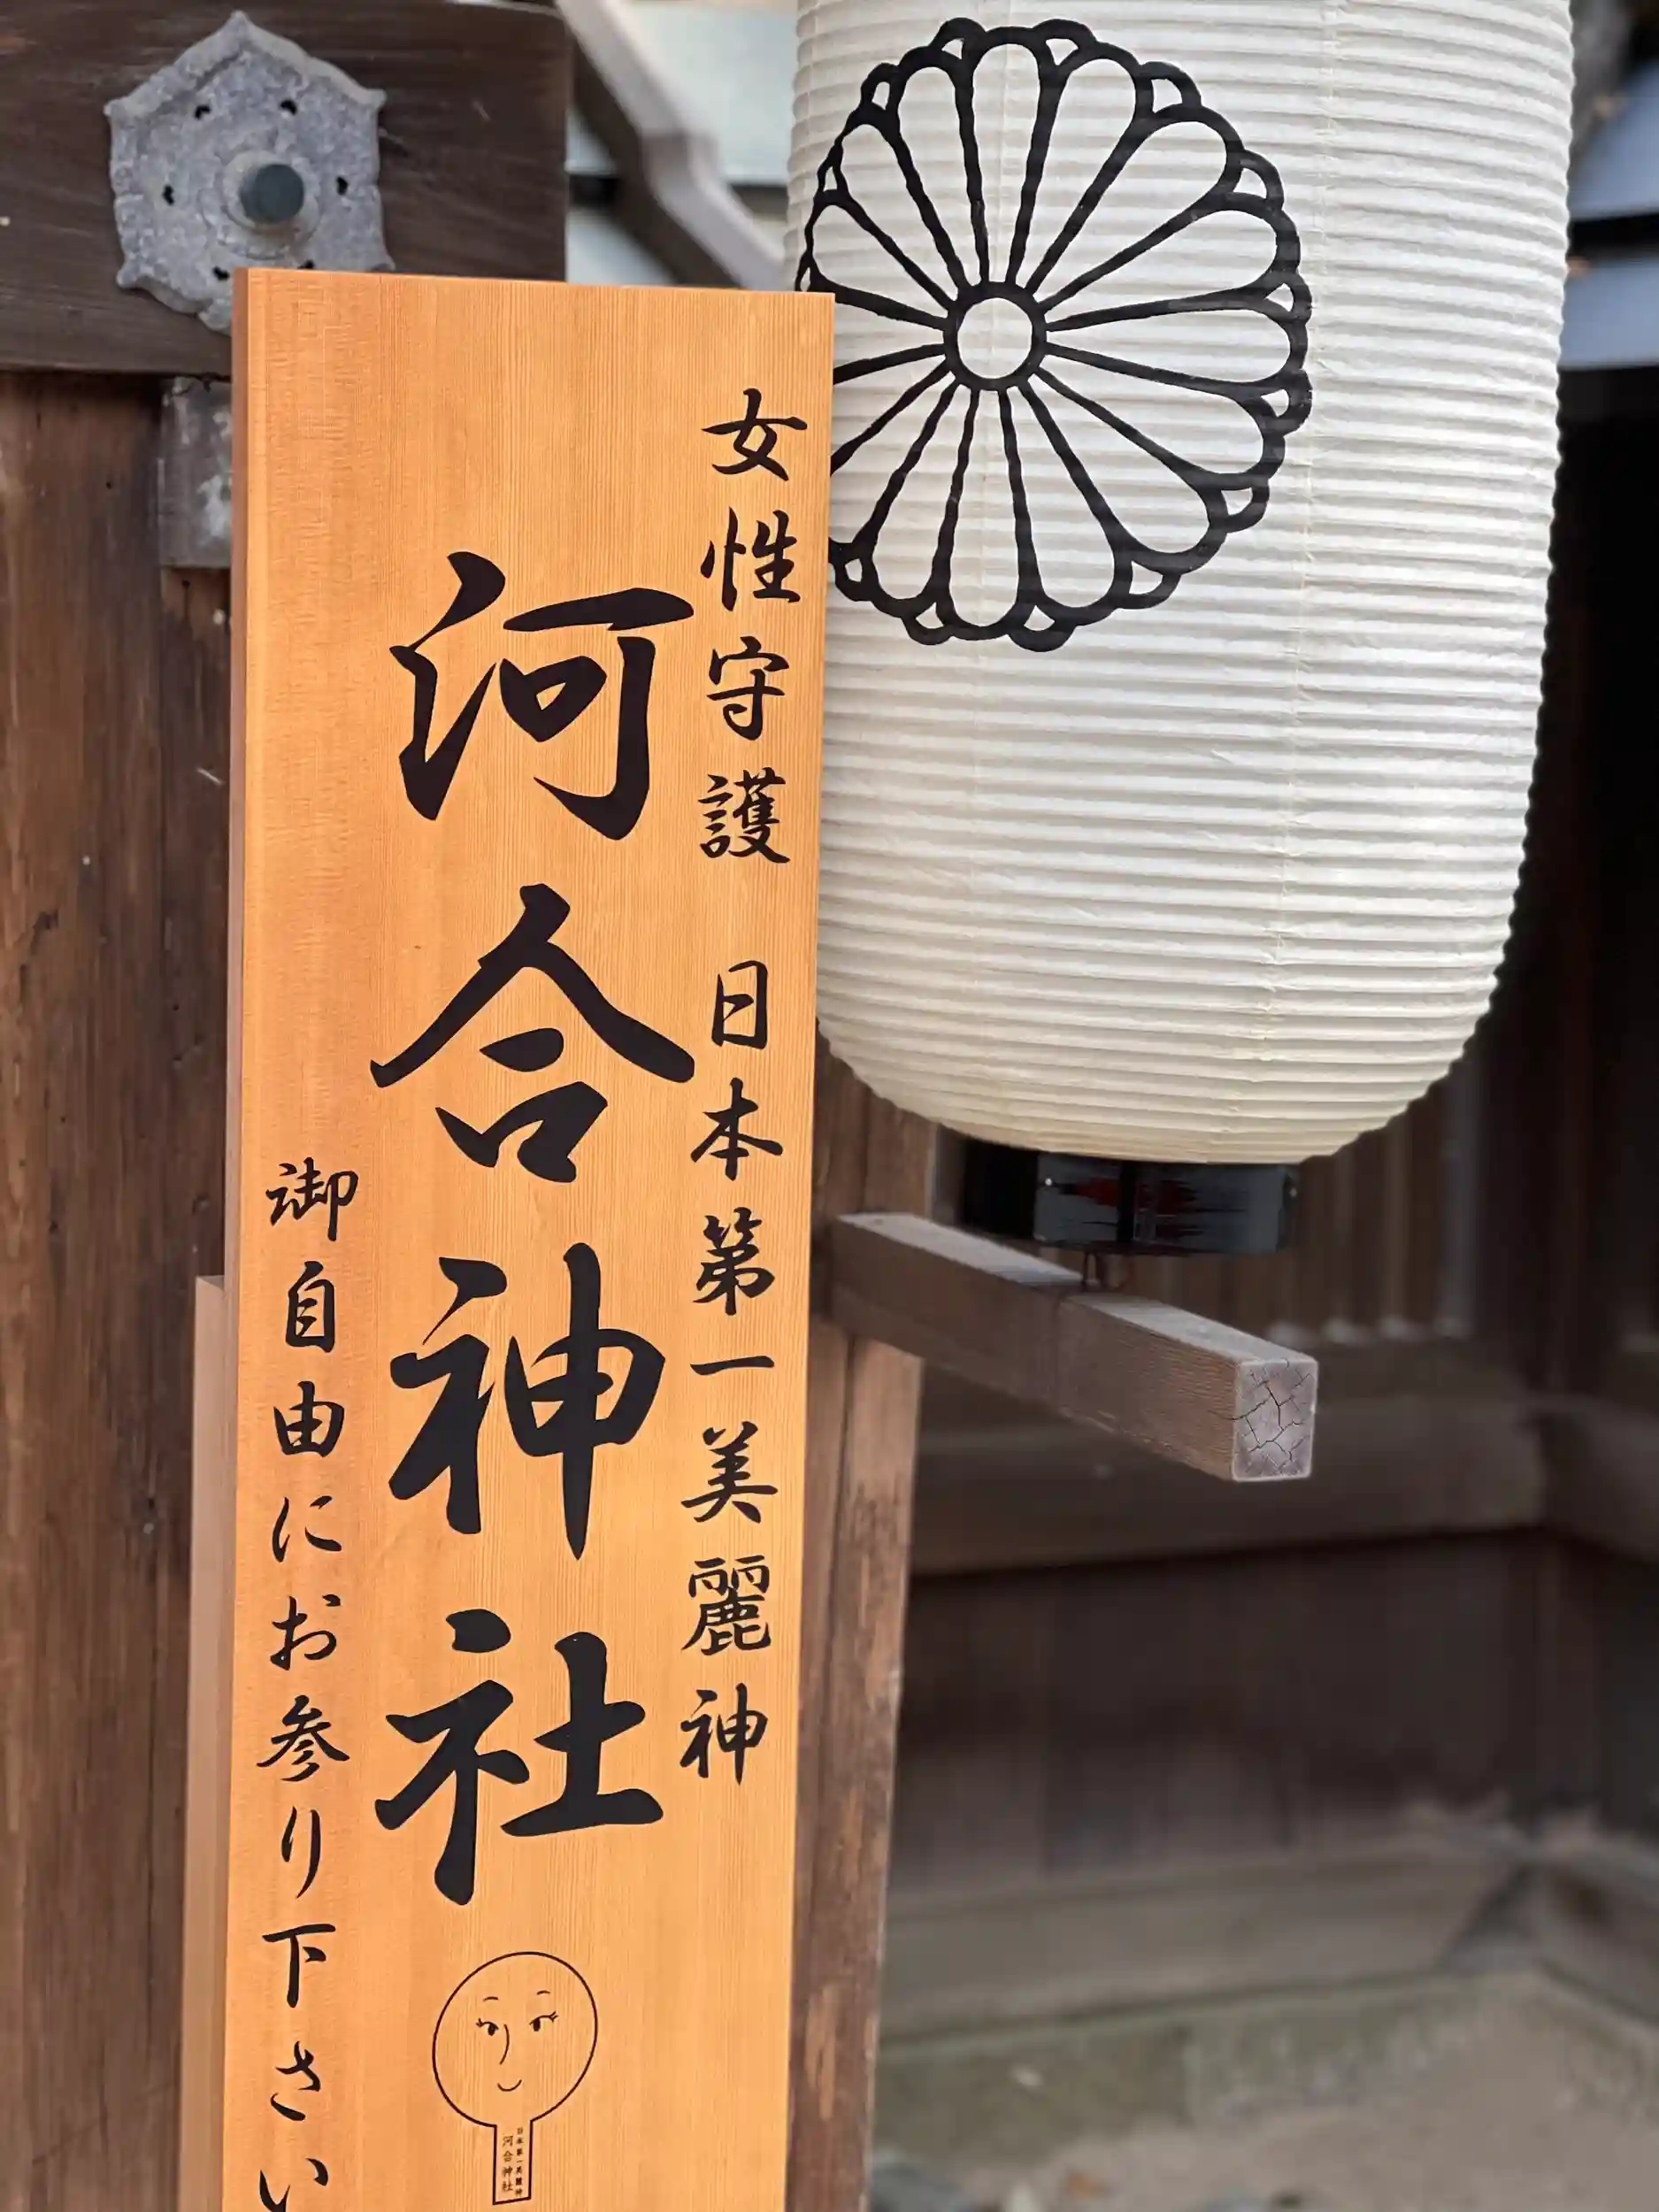 女性守護 日本第一美麗神
河合神社
御自由にお参り下さい
日本第一美麗神
河合神社